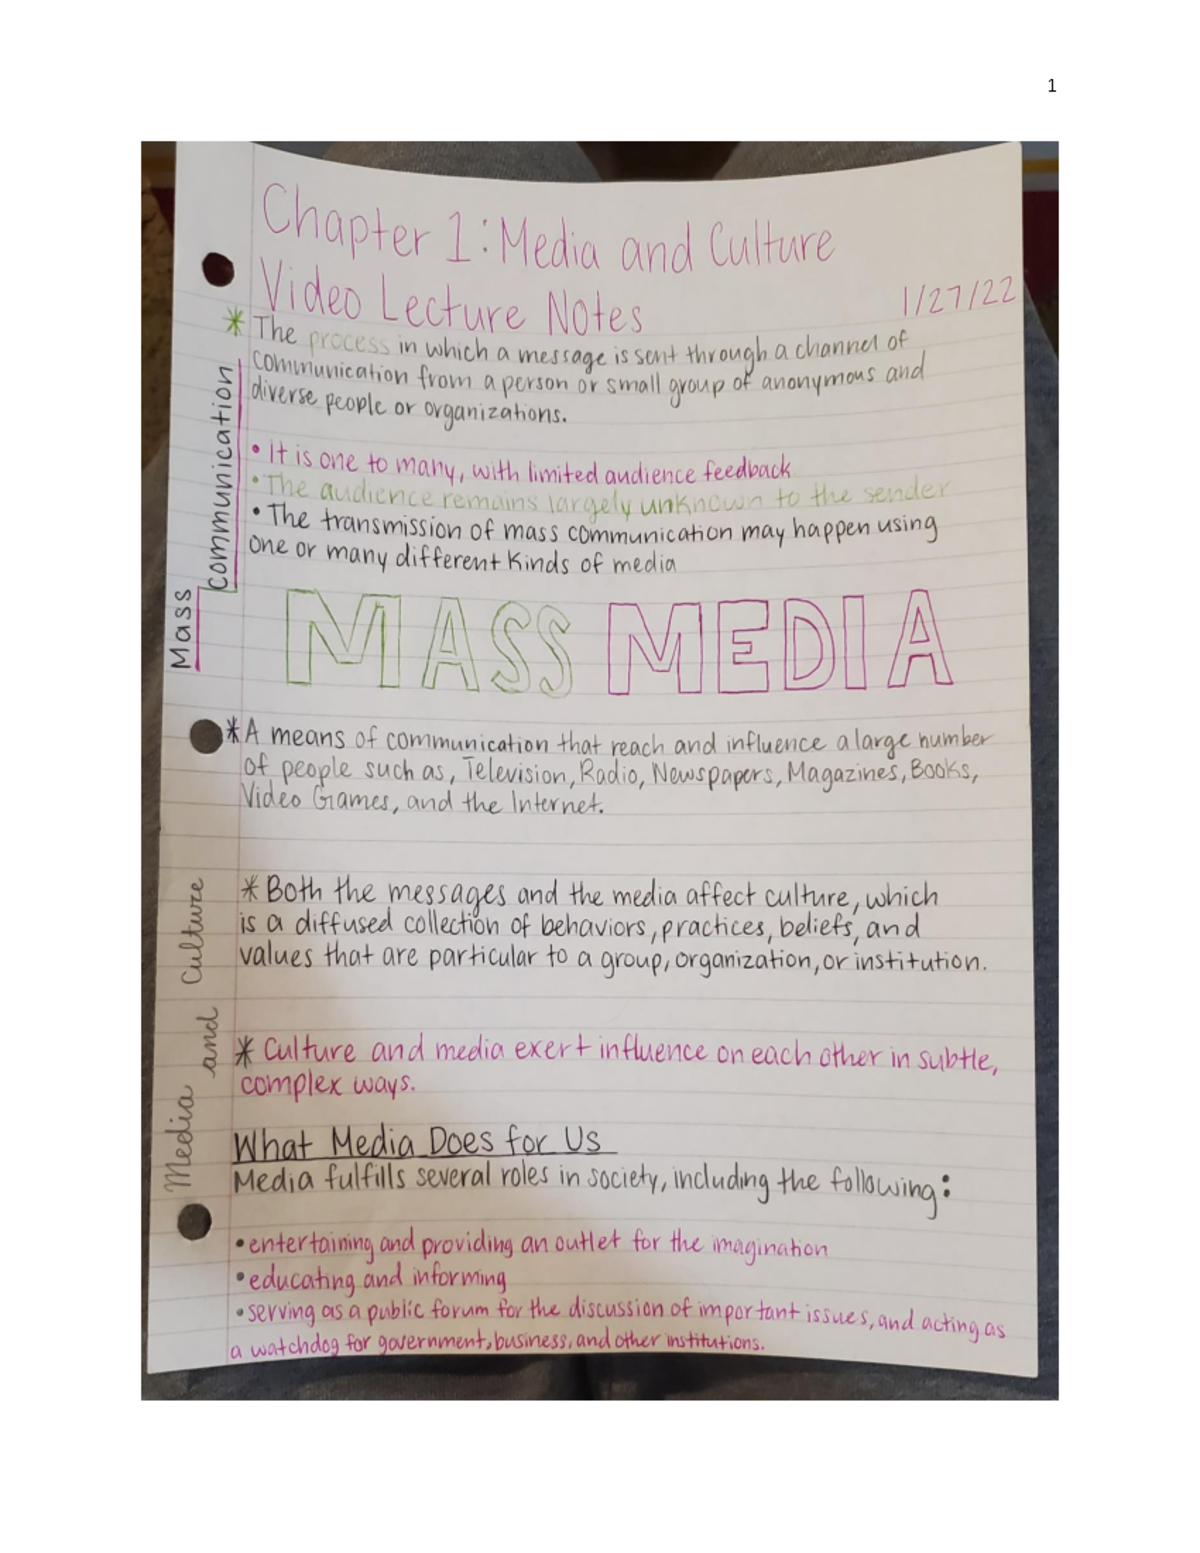 1
Chapter 1: Media and Culture
Video Lecture Notes
1/27/22
* The process in which a message is sent through a channel of
communication from a person or small group of anonymous and
diverse people or organizations.
Mass communication
• It is one to many, with limited audience feedback
• The audience remains largely unknown to the sender
• The transmission of mass communication may happen using
one or many different kinds of media
MASS MEDIA
* A means of communication that reach and influence a large number
of people such as, Television, Radio, Newspapers, Magazines, Books,
Video Games, and the Internet.
Media and Culture
* Both the messages and the media affect culture, which
is a diffused collection of behaviors, practices, beliefs, and
values that are particular to a group, organization, or institution.
* Culture and media exert influence on each other in subtle,
complex ways.
What Media Does for Us
Media fulfills several roles in society, including the following:
• entertaining and providing an outlet for the imagination
• educating and informing
• serving as a public forum for the discussion of important issues, and acting as
a watchdog for government, business, and other institutions.